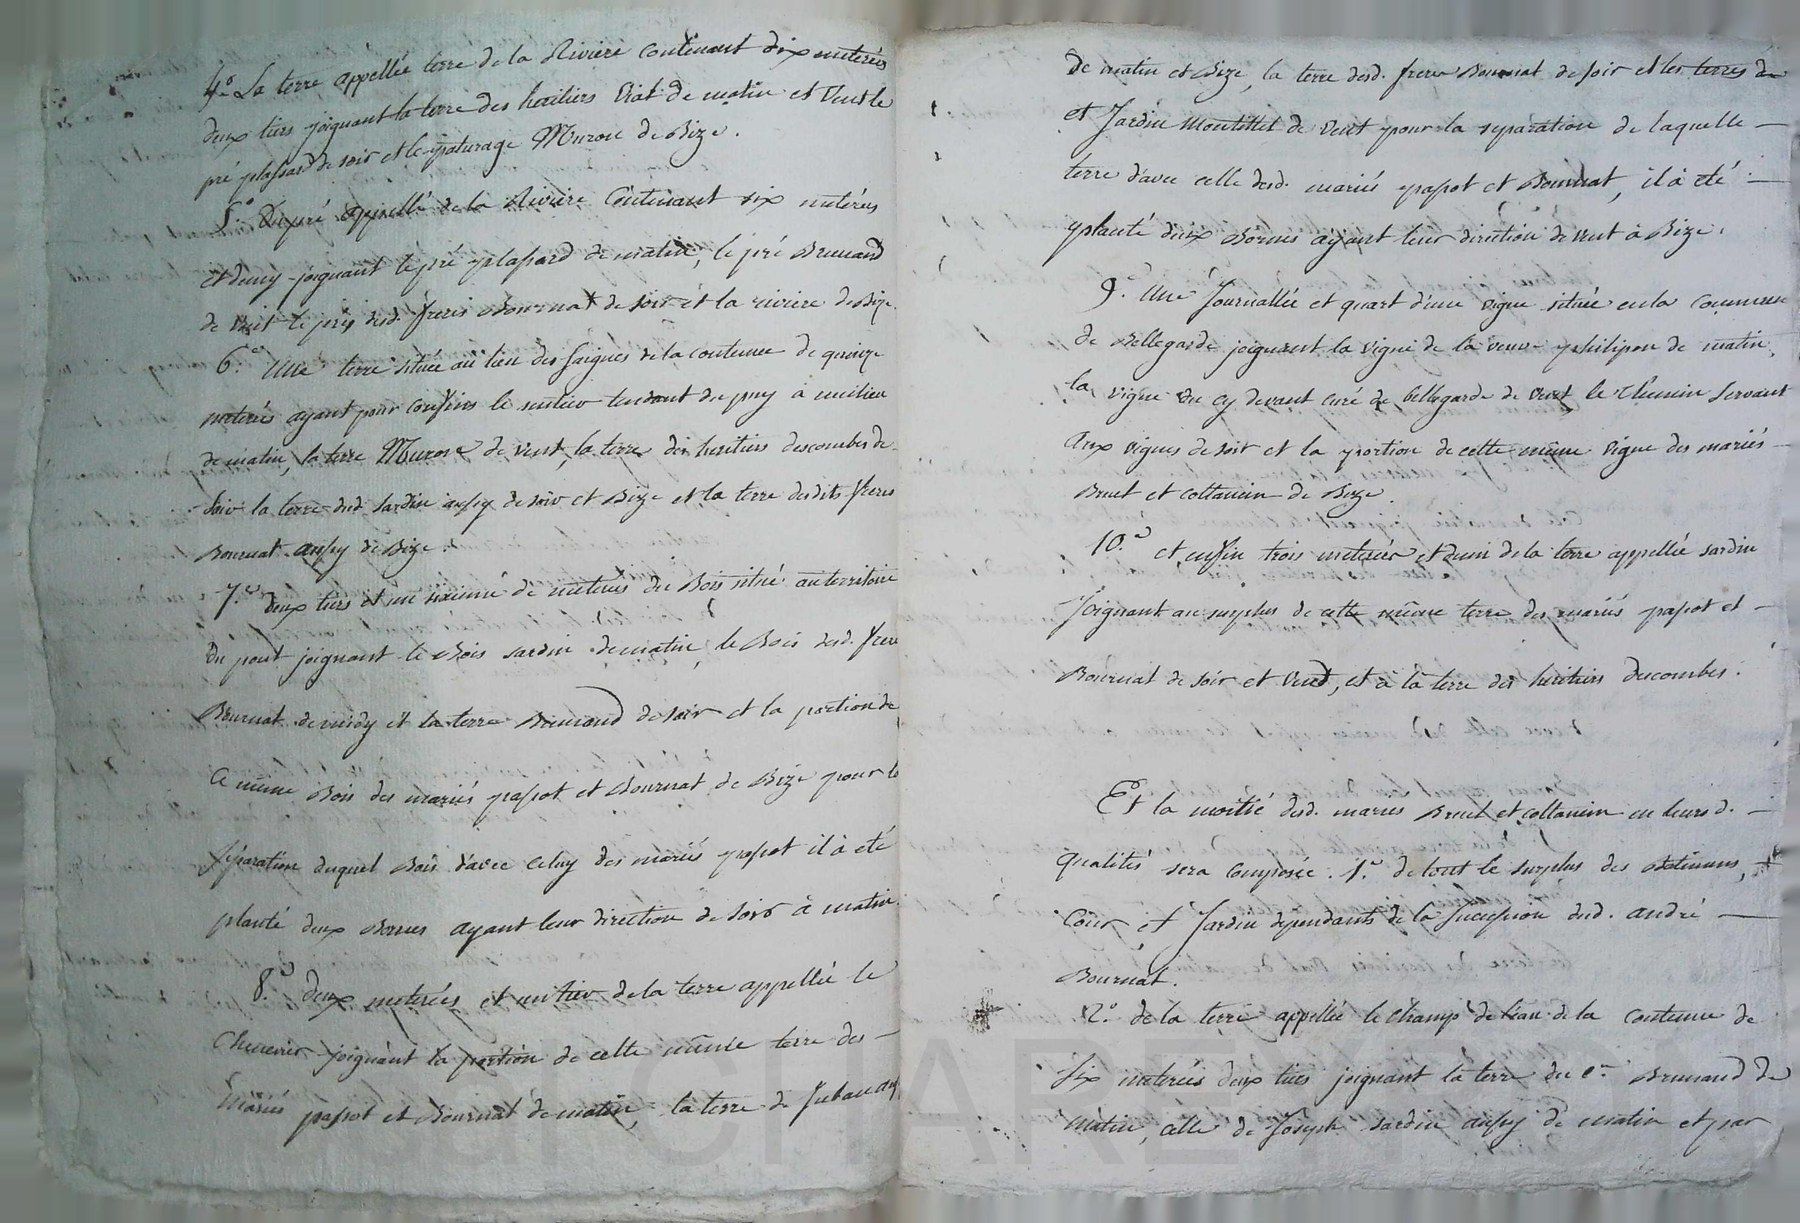 4.° La terre appellée terre de la Riviere contenant dix meterées
deux tiers joignant la terre des heritiers Viat de matin et Vent le
pré plassard de soir et le paturage Muron de Bize.
5.° Du pré appellé de la Riviere Contenant six meterées
et demy joignant le pré plassard de matin, le pré Brunand
de Vent le prés desd. freres Bournat de soir et la riviere de Bize.
6.° Une terre située au lieu des saignes de la contenue de quinze
meterées ayant pour confins le sentier tendant du puy à milieu
de matin, la terre Muron de vent, la terre des heritiers descombes de
soir la terre dud. Sardin aussy de soir et Bize et la terre desdits freres
Bournat aussy de Bize.
7.° deux tiers et un sixieme de meterées du Bois situé au territoire
du pont joignant le Bois sardin de matin, le Bois desd. frere
Bournat de midy et la terre Brunand de soir et la portion de
Ce même Bois des mariés papot et Bournat de Bize pour la
séparation duquel Bois d'avec celuy des mariés papot il à eté
planté deux Bornes ayant leur direction de soir à matin.
8.° deux meterées et un tier de la terre appellée le
Chenevier joignant la portion de cette même terre des —
mariés papot et Bournat de matin, la terre de
de matin et Bize, la terre desd. freres Bournat de soir et les terres de
et Jardin Montillet de Vent pour la separation de laquelle —
terre d'avec celle desd. mariés papot et Bournat, il à eté —
planté deux Bornes ayant leur direction de vent à Bize.
9.° Une Journallée et quart d'une vigne située en la Commune
de Bellegarde joignant la vigne de la veuve philipon de matin,
la vigne du cy devant curé de bellegarde de Vent le Chemin servant
aux vignes de soir et la portion de cette même vigne des mariés —
Bruel et coltanin de Bize.
10.° et enfin trois meterées et demi de la terre appellée sardin
Joignant au surplus de cette même terre des mariés papot et —
Bournat de soir et Vent, et à la terre des heritiers descombes.
Et la moitié desd. mariés Bruel et coltanin en leursd. —
qualités sera composée. 1.° de tout le surplus des Batimens,
Cour et Jardin dependants de la succession dud. andré —
Bournat.
2.° de la terre appellée le Champ de l'eau de la contenue de
six meterées deux tiers joignant la terre du c.en Brunand de
matin, celle de Joseph Sardin aussy de matin et par
CHARETTON